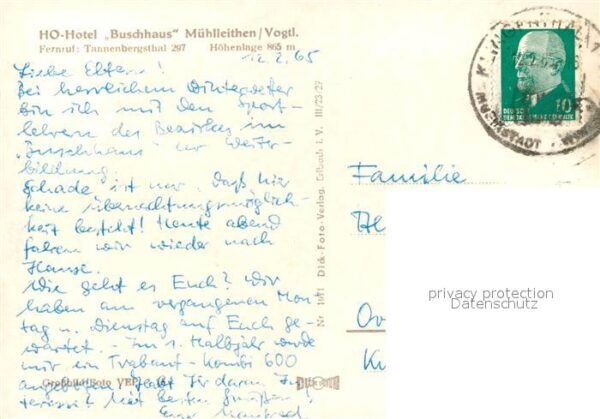 HO-Hotel „Buschhaus" Mühlleithen/Vogtl.
Fernruf: Tannenbergsthal 297 Höhenlage 865 m
12.2.65
Liebe Eltern!
Bei herrlichem Winterwetter
bin ich mit den Sport-
lehrern des Bezirkes im
„Buschhaus" zur Weiter-
bildung.
Schade ist nur, daß hier
keine Übernachtungsmöglich-
keit besteht! Heute abend
fahren wir wieder nach
Hause.
Wie geht es Euch? Wir
haben am vergangenen Mon
tag u. Dienstag auf Euch ge-
wartet. - Im 1. Halbjahr wurde
mir ein Trabant-Kombi 600
angeboten. Habt Ihr daran Inte
resse? Mit besten Grüßen!
Euer Manfred
Großbild Foto VEB
Dick-Foto-Verlag, Erlbach i. V. III/23/27
KLINGENTHAL 1
DEUTSCHE
DEMOKRATISCHE REPUBLIK
10
Familie
Ov
privacy protection
Datenschutz